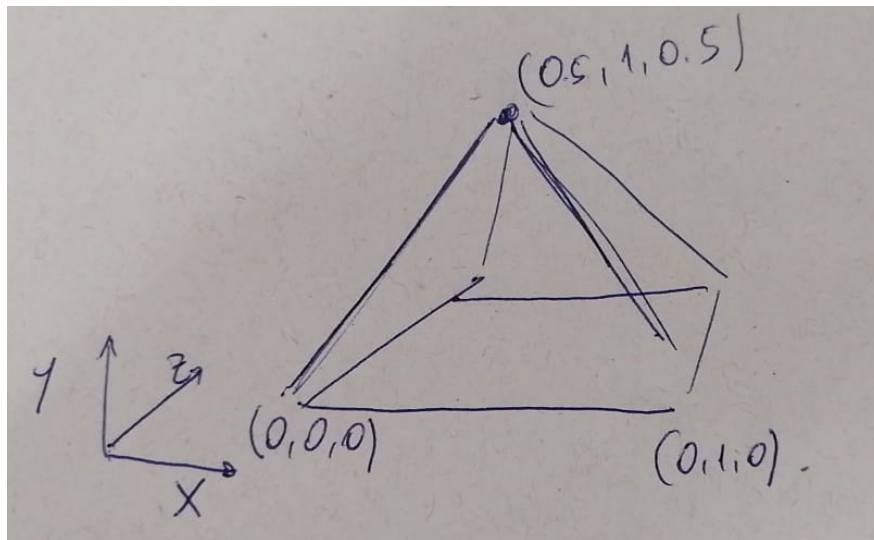 (0.5, 1, 0.5)
Y
Z
X
(0,0,0)
(0,1,0).